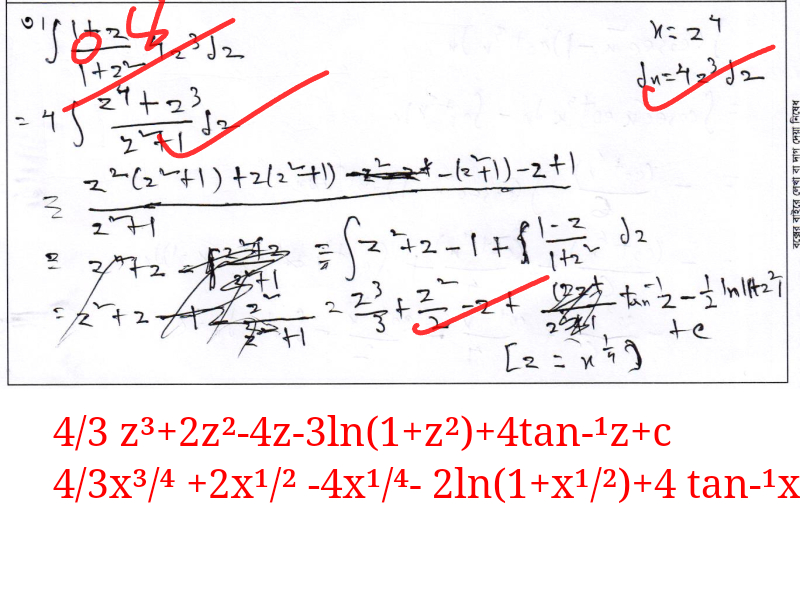 ৩। ∫ (1+z)/(1+z²) 4z³ dz
x = z⁴
dx = 4z³ dz
4
= 4 ∫ (z⁴ + z³)/(z²+1) dz
= (z²(z²+1) + z(z²+1) - (z²+1) - z + 1)/(z²+1)
= ∫ z² + z - 1 + ∫ (1-z)/(1+z²) dz
= z³/3 + z²/2 - z + tan⁻¹z - ½ ln|1+z²| + c
[z = x^¼]
বক্সের বাইরে লেখা বা দাগ দেয়া নিষেধ
4/3 z³+2z²-4z-3ln(1+z²)+4tan-¹z+c
4/3x³/⁴ +2x¹/² -4x¹/⁴- 2ln(1+x¹/²)+4 tan-¹x